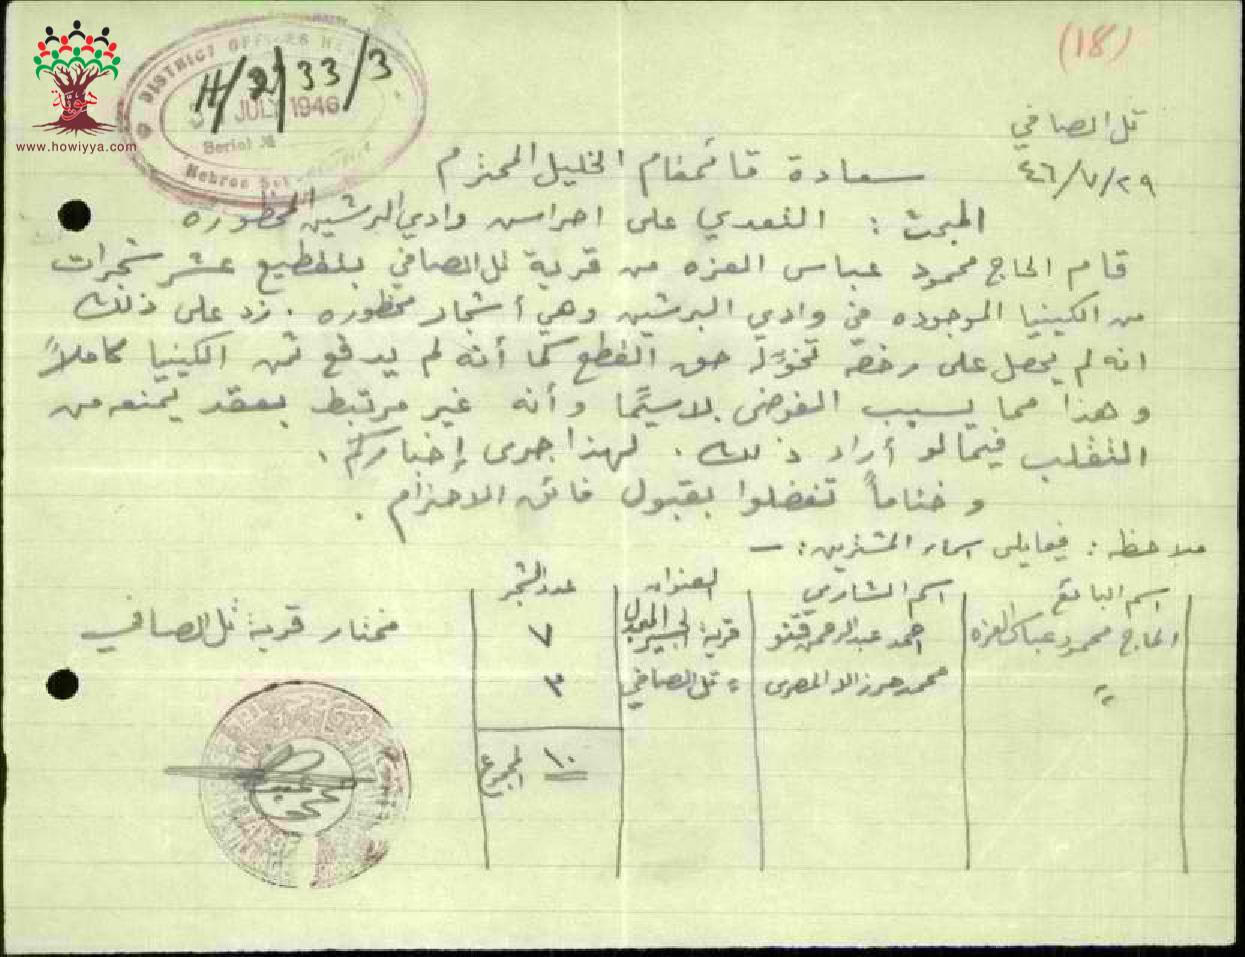 (18)
DISTRICT OFFICES
H/2/33/3
JULY 1946
Serial №
Hebron
هوية
www.howiyya.com
تل الصافي
٤٦/٧/٢٩
سعادة قائمقام الخليل المحترم
المبحث : التعدي على احراس وادي البرشين المحظوره
قام الحاج محمود عباس العزه من قرية تل الصافي بلقطيع عشر شجرات
من الكينيا الموجوده في وادي البرشين وهي أشجار محظوره . زد على ذلك
انه لم يحصل على رخصة تخوّله حق القطع كما أنه لم يدفع ثمن الكينيا كاملاً
وهذا مما يسبب الفوضى بلاسيّما وأنه غير مرتبط بعقد يمنعه من
التقلب فيمالو أراد ذلك . لهذا جرى إخباركم .
وختاماً تفضلوا بقبول فائق الاحترام .
ملاحظه : فيمايلي اسماء المشترين : —
اسم البائع اسم الشاري العنوان عدد الشجر
الحاج محمود عباس العزه احمد عبدالرحمن قرية ٧
" محمد حرزالله المصري " تل الصافي ٣
١٠ المجموع
مختار قرية تل الصافي